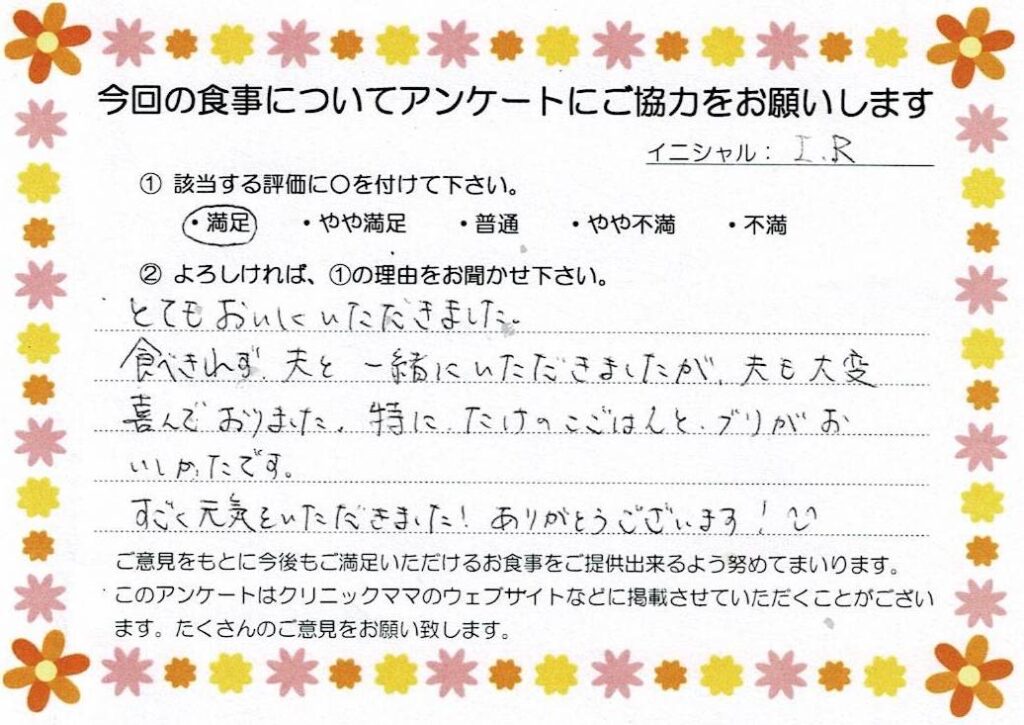 今回の食事についてアンケートにご協力をお願いします
イニシャル： I.R
① 該当する評価に〇を付けて下さい。
・満足 ・やや満足 ・普通 ・やや不満 ・不満
② よろしければ、①の理由をお聞かせ下さい。
とてもおいしくいただきました。
食べきれず、夫と一緒にいただきましたが、夫も大変
喜んでおりました。特に、たけのこごはんと、ブリがお
いしかったです。
すごく元気をいただきました！ありがとうございます！
ご意見をもとに今後もご満足いただけるお食事をご提供出来るよう努めてまいります。
このアンケートはクリニックママのウェブサイトなどに掲載させていただくことがござい
ます。たくさんのご意見をお願い致します。